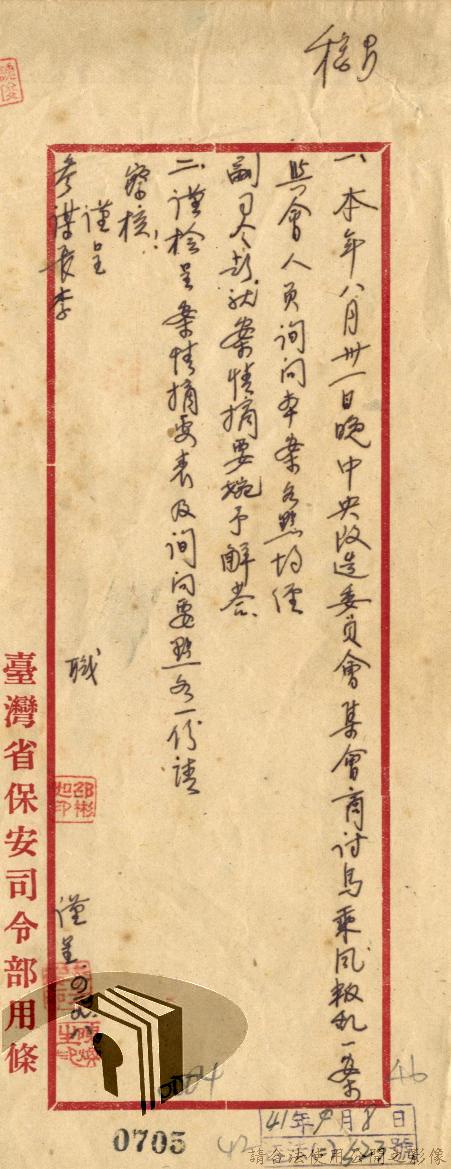 一、本年八月卅一日晚中央改造委員會集會商討馬乘風叛亂一案
與會人員詢問本案各點均經
副司令彭就案情摘要婉予解答
二、謹檢呈案情摘要表及詢問要點各一份請
察核！
謹呈
參謀長李
職
邵彬如印
謹呈
臺灣省保安司令部用條
41年9月8日
號
0705
46
請合法使用公開之影像